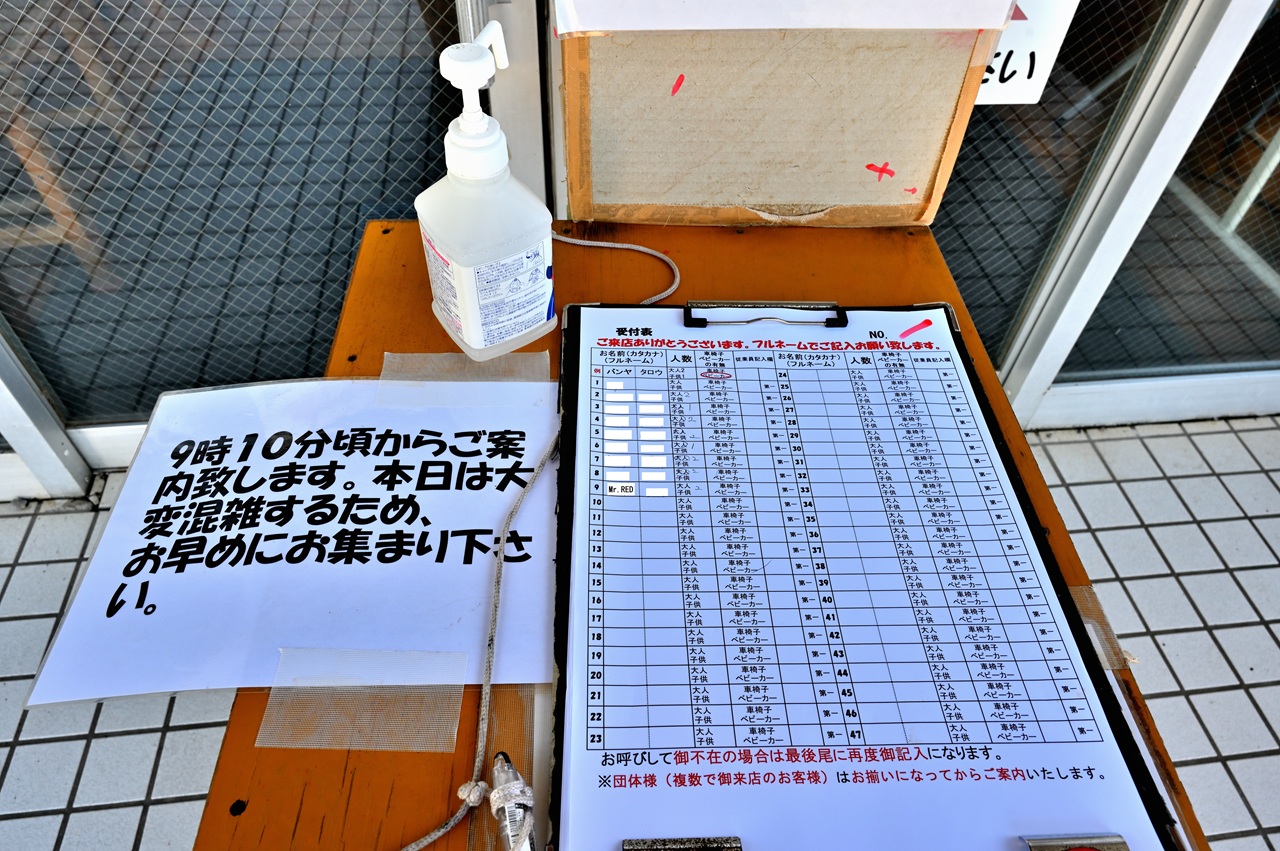 さい
9時10分頃からご案
内致します。本日は大
変混雑するため、
お早めにお集まり下さ
い。
受付表 NO.
ご来店ありがとうございます。フルネームでご記入お願い致します。
お名前(カタカナ)(フルネーム) 人数 車椅子ベビーカーの有無 従業員記入欄 お名前(カタカナ)(フルネーム) 人数 車椅子ベビーカーの有無 従業員記入欄
例 バンヤ タロウ 大人2 子供1 車椅子 ベビーカー 24 大人 子供 車椅子 ベビーカー 第一
1 大人 子供 車椅子 ベビーカー 第一 25 大人 子供 車椅子 ベビーカー 第一
2 大人2 子供 車椅子 ベビーカー 第一 26 大人 子供 車椅子 ベビーカー 第一
3 大人 子供 車椅子 ベビーカー 第一 27 大人 子供 車椅子 ベビーカー 第一
4 大人2 子供 車椅子 ベビーカー 第一 28 大人 子供 車椅子 ベビーカー 第一
5 大人 子供 車椅子 ベビーカー 第一 29 大人 子供 車椅子 ベビーカー 第一
6 大人 子供 車椅子 ベビーカー 第一 30 大人 子供 車椅子 ベビーカー 第一
7 大人2 子供 車椅子 ベビーカー 第一 31 大人 子供 車椅子 ベビーカー 第一
8 大人2 子供 車椅子 ベビーカー 第一 32 大人 子供 車椅子 ベビーカー 第一
9 Mr.RED 大人2 子供 車椅子 ベビーカー 第一 33 大人 子供 車椅子 ベビーカー 第一
10 大人 子供 車椅子 ベビーカー 第一 34 大人 子供 車椅子 ベビーカー 第一
11 大人 子供 車椅子 ベビーカー 第一 35 大人 子供 車椅子 ベビーカー 第一
12 大人 子供 車椅子 ベビーカー 第一 36 大人 子供 車椅子 ベビーカー 第一
13 大人 子供 車椅子 ベビーカー 第一 37 大人 子供 車椅子 ベビーカー 第一
14 大人 子供 車椅子 ベビーカー 第一 38 大人 子供 車椅子 ベビーカー 第一
15 大人 子供 車椅子 ベビーカー 第一 39 大人 子供 車椅子 ベビーカー 第一
16 大人 子供 車椅子 ベビーカー 第一 40 大人 子供 車椅子 ベビーカー 第一
17 大人 子供 車椅子 ベビーカー 第一 41 大人 子供 車椅子 ベビーカー 第一
18 大人 子供 車椅子 ベビーカー 第一 42 大人 子供 車椅子 ベビーカー 第一
19 大人 子供 車椅子 ベビーカー 第一 43 大人 子供 車椅子 ベビーカー 第一
20 大人 子供 車椅子 ベビーカー 第一 44 大人 子供 車椅子 ベビーカー 第一
21 大人 子供 車椅子 ベビーカー 第一 45 大人 子供 車椅子 ベビーカー 第一
22 大人 子供 車椅子 ベビーカー 第一 46 大人 子供 車椅子 ベビーカー 第一
23 大人 子供 車椅子 ベビーカー 第一 47 大人 子供 車椅子 ベビーカー 第一
お呼びして御不在の場合は最後尾に再度御記入になります。
※団体様(複数で御来店のお客様)はお揃いになってからご案内いたします。